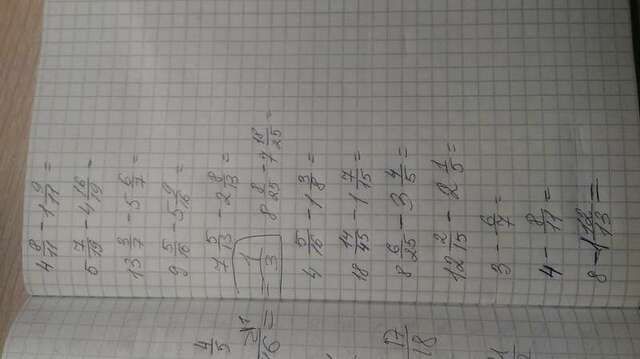 4 8/11 - 1 9/11 =
5 7/19 - 4 16/19 =
13 3/7 - 5 6/7 =
9 5/16 - 5 9/16 =
7 5/13 - 2 8/13 =
= 1/3 8 8/25 - 7 18/25 =
4 5/16 - 1 3/8 =
18 14/45 - 1 7/15 =
8 6/25 - 3 4/5 =
12 2/15 - 2 1/5 =
3 - 6/7 =
4 - 8/11 =
8 - 1 12/13 =
4/5
17/18